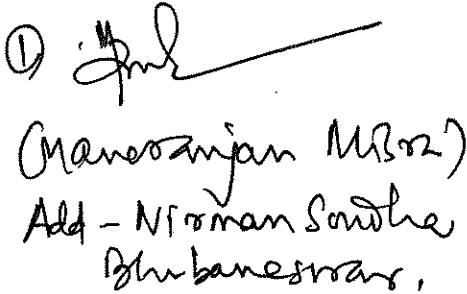 ①
(Manoranjan Misra)
Add - Nirman Soudha
Bhubaneswar,